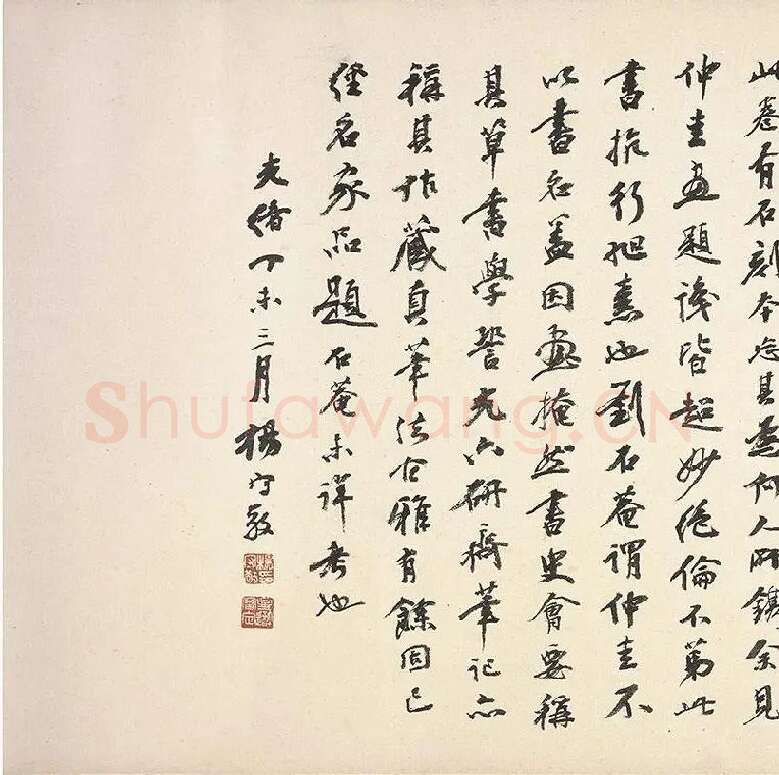 此卷有石刻本忘其爲何人所鐫余見
仲圭畫題識皆超妙絕倫不第此
書行也劉石菴謂仲圭不
以書名蓋因畫掩然書史會要稱
其草書學䛒光六研齋筆記亦
稱其作藏真筆法古雅有餘固已
經名家品題石菴未詳考也
光緒丁未三月楊守敬
Shufawang.CN